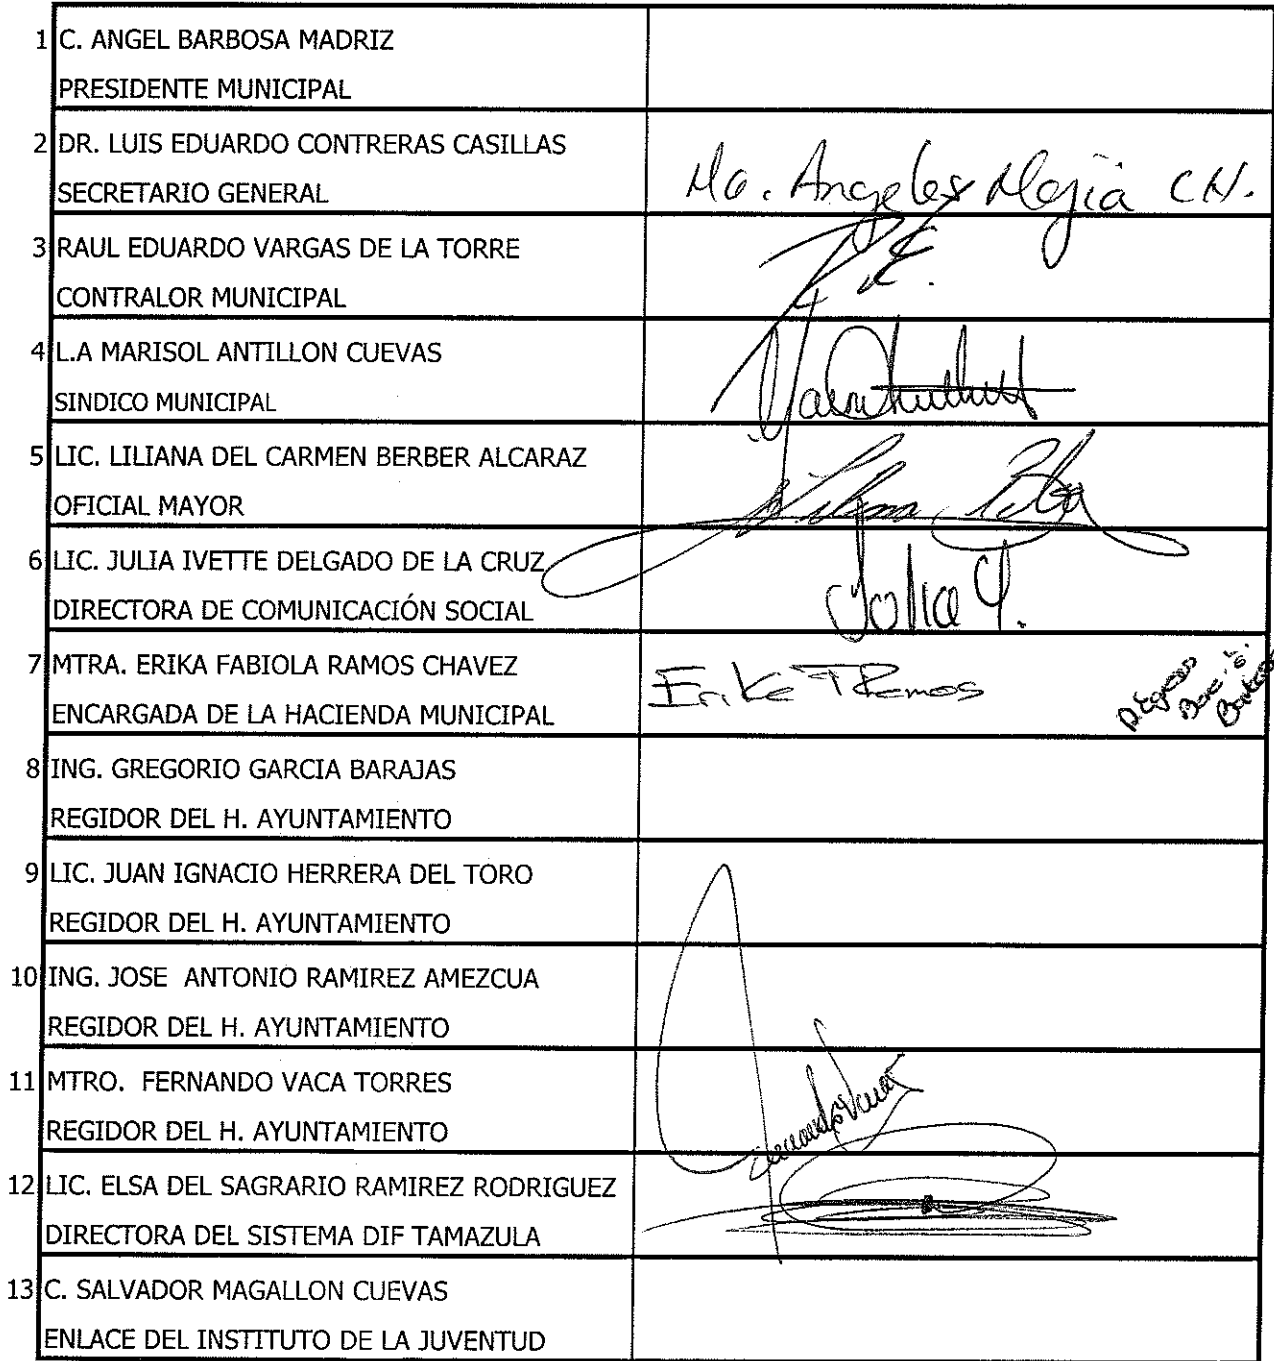 1 C. ANGEL BARBOSA MADRIZ
PRESIDENTE MUNICIPAL
2 DR. LUIS EDUARDO CONTRERAS CASILLAS
SECRETARIO GENERAL
Ma. Angeles Mejia CN.
3 RAUL EDUARDO VARGAS DE LA TORRE
CONTRALOR MUNICIPAL
4 L.A MARISOL ANTILLON CUEVAS
SINDICO MUNICIPAL
5 LIC. LILIANA DEL CARMEN BERBER ALCARAZ
OFICIAL MAYOR
6 LIC. JULIA IVETTE DELGADO DE LA CRUZ
DIRECTORA DE COMUNICACIÓN SOCIAL
Julia Y.
7 MTRA. ERIKA FABIOLA RAMOS CHAVEZ
ENCARGADA DE LA HACIENDA MUNICIPAL
Erika F Ramos
8 ING. GREGORIO GARCIA BARAJAS
REGIDOR DEL H. AYUNTAMIENTO
9 LIC. JUAN IGNACIO HERRERA DEL TORO
REGIDOR DEL H. AYUNTAMIENTO
10 ING. JOSE ANTONIO RAMIREZ AMEZCUA
REGIDOR DEL H. AYUNTAMIENTO
11 MTRO. FERNANDO VACA TORRES
REGIDOR DEL H. AYUNTAMIENTO
12 LIC. ELSA DEL SAGRARIO RAMIREZ RODRIGUEZ
DIRECTORA DEL SISTEMA DIF TAMAZULA
13 C. SALVADOR MAGALLON CUEVAS
ENLACE DEL INSTITUTO DE LA JUVENTUD